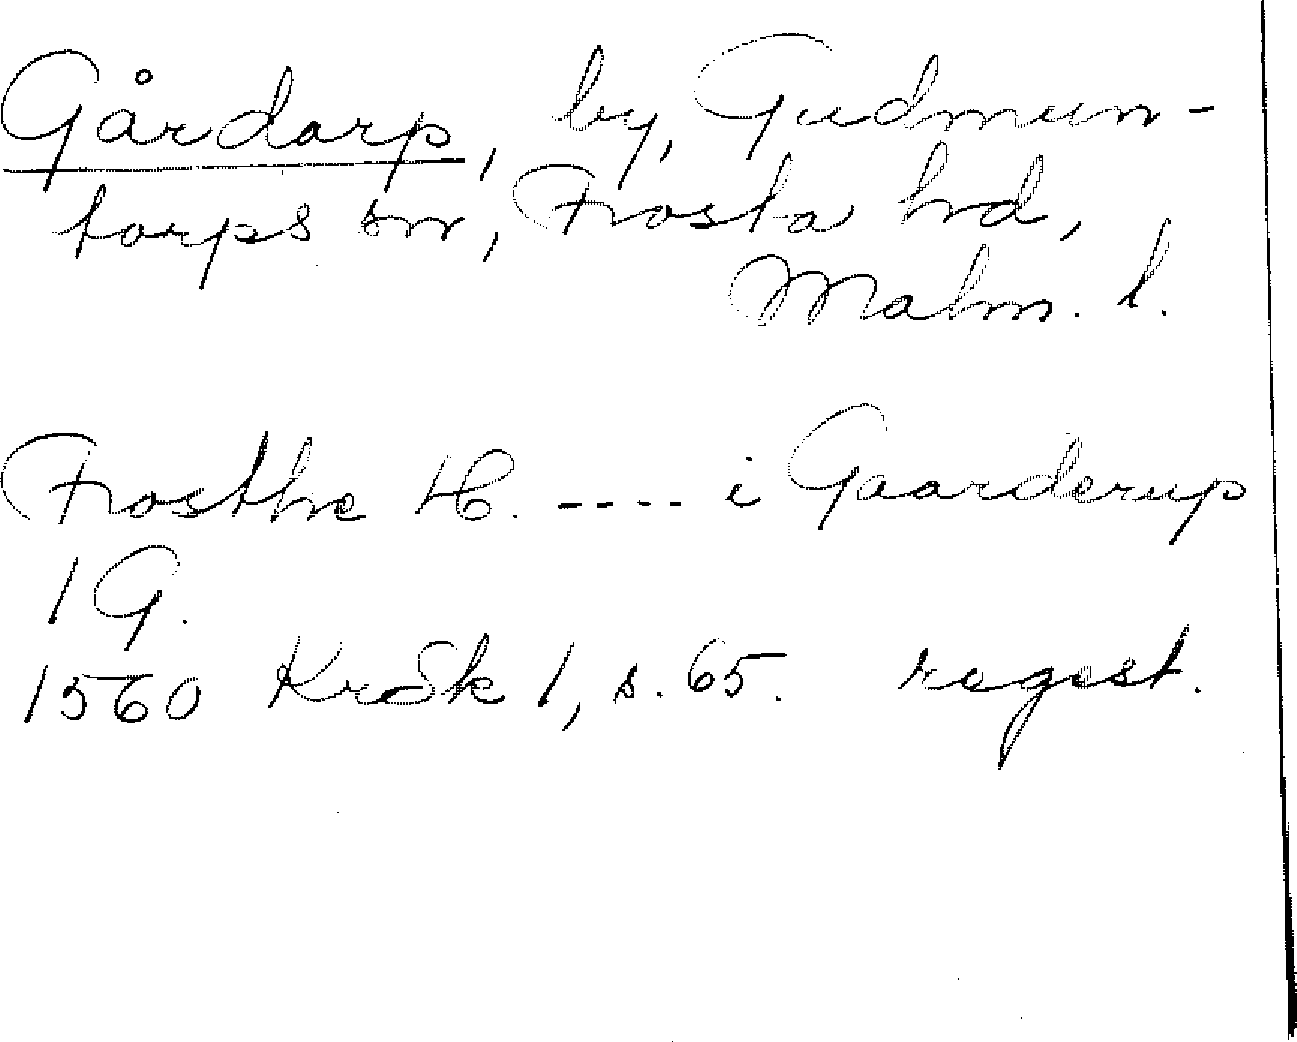 Gårdarp, by, Gudmun-
torps sn, Frosta hd,
Malm. l.
Frosthe H. ---- i Gaarderup
1 G.
1560 KrSk 1, s. 65. regest.